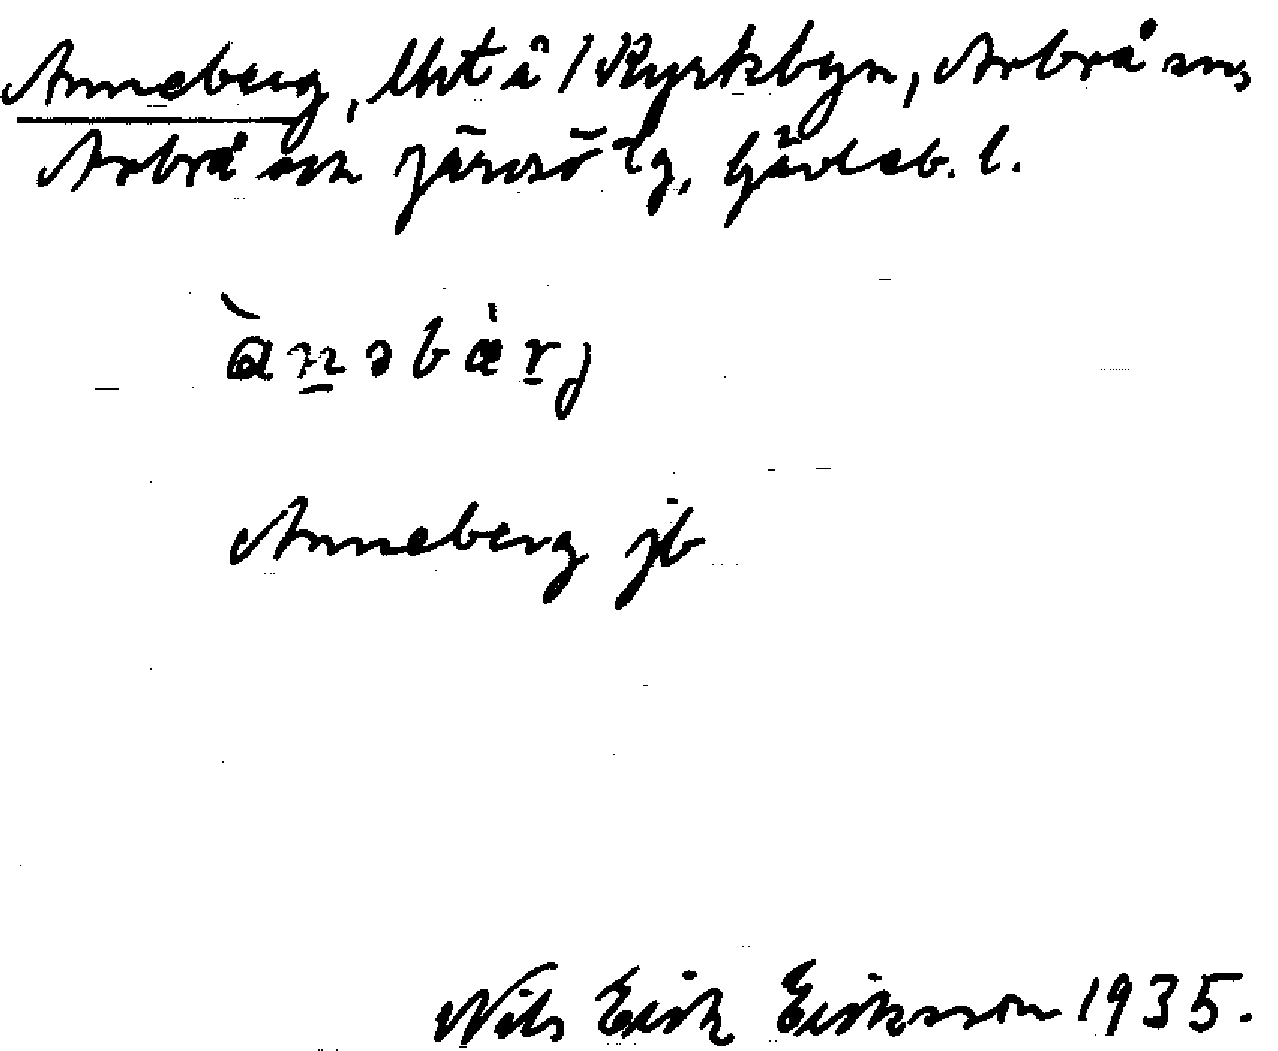 Anneberg, lht å 1 Kyrkbyn, Arbrå sn,
Arbrå och Järvsö tg, Gävleb. l.
ànəbæ̀rj
Anneberg jb
Nils Erik Eriksson 1935.